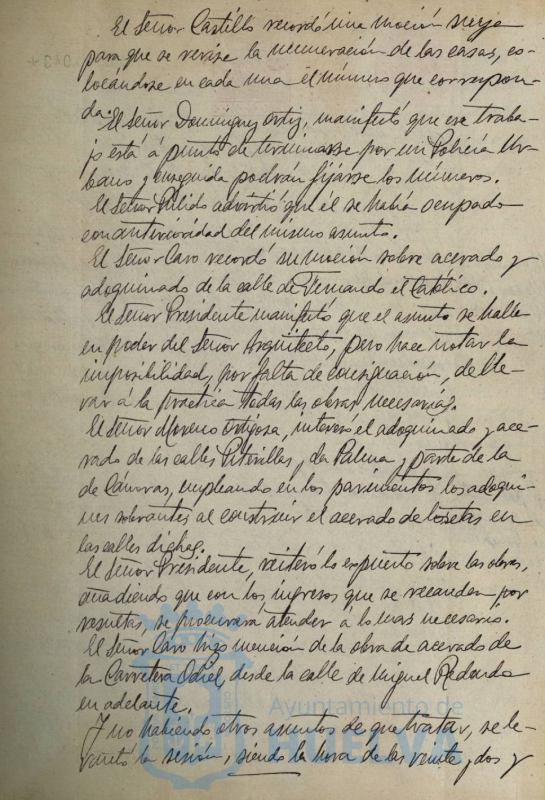 El Señor Castillo recordó una moción suya
para que se revise la numeración de las casas, co-
locándose en cada una el número que correspon-
da.
El Señor Dominguez Ortiz, manifestó que ese traba-
jo está á punto de terminarse por un Policía Ur-
bano y enseguida podrán fijarse los números.
El Señor Pulido advirtió que él se había ocupado
con anterioridad del mismo asunto.
El Señor Caro recordó su moción sobre acerado y
adoquinado de la calle de Fernando el Católico.
El Señor Presidente manifestó que el asunto se halla
en poder del Señor Arquitecto, pero hace notar la
imposibilidad, por falta de consignación, de lle-
var á la práctica todas las obras necesarias.
El Señor Moreno Ortijosa, interesó el adoquinado y ace-
rado de las calles Piterilles, La Palma y parte de la
de Cánovas, empleando en los pavimentos los adoqui-
nes sobrantes al construir el acerado de losetas en
las calles dichas.
El Señor Presidente, reiteró lo expuesto sobre las obras,
añadiendo que con los ingresos que se recauden por
resultas, se procurará atender á lo mas necesario.
El Señor Caro hizo mención de la obra de acerado de
la Carretera Odiel, desde la calle de Miguel Redondo
en adelante.
Y no habiendo otros asuntos de que tratar, se le-
vantó la sesión, siendo la hora de las veinte y dos y
Ayuntamiento de
HUELVA